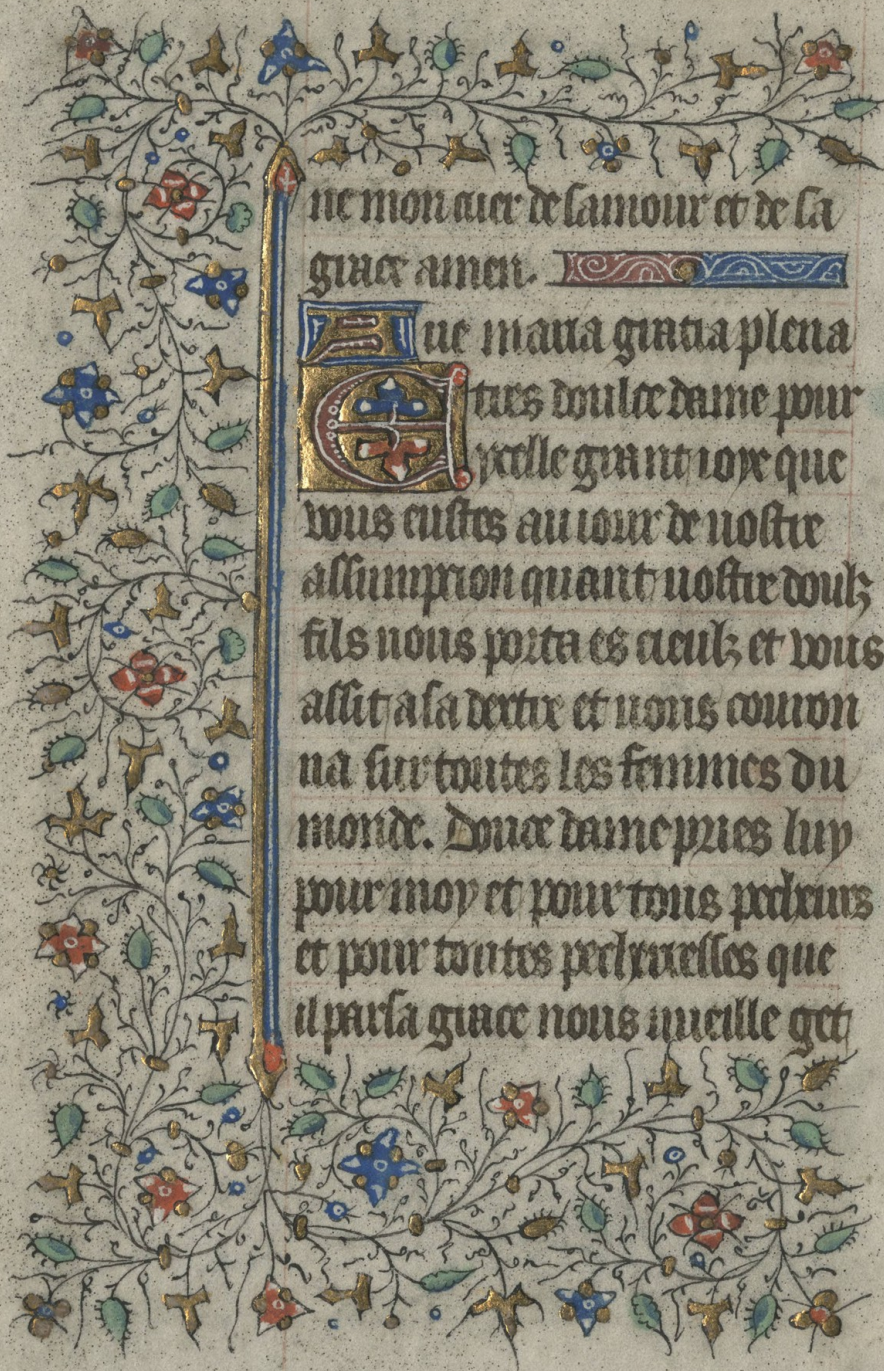 ne mon cuer de samour et de sa
grace amen.
Aue maria gratia plena
Etres doulce dame pour
ycelle grant ioye que
vous eustes au iour de uostre
assumpcion quant uostre doulz
fils uous porta es cieulz et vous
assit a sa dextre et uous couron
na sur toutes les femmes du
monde. Douce dame pries luy
pour moy et pour tous pecheurs
et pour toutes pecherresses que
il par sa grace nous uueille get